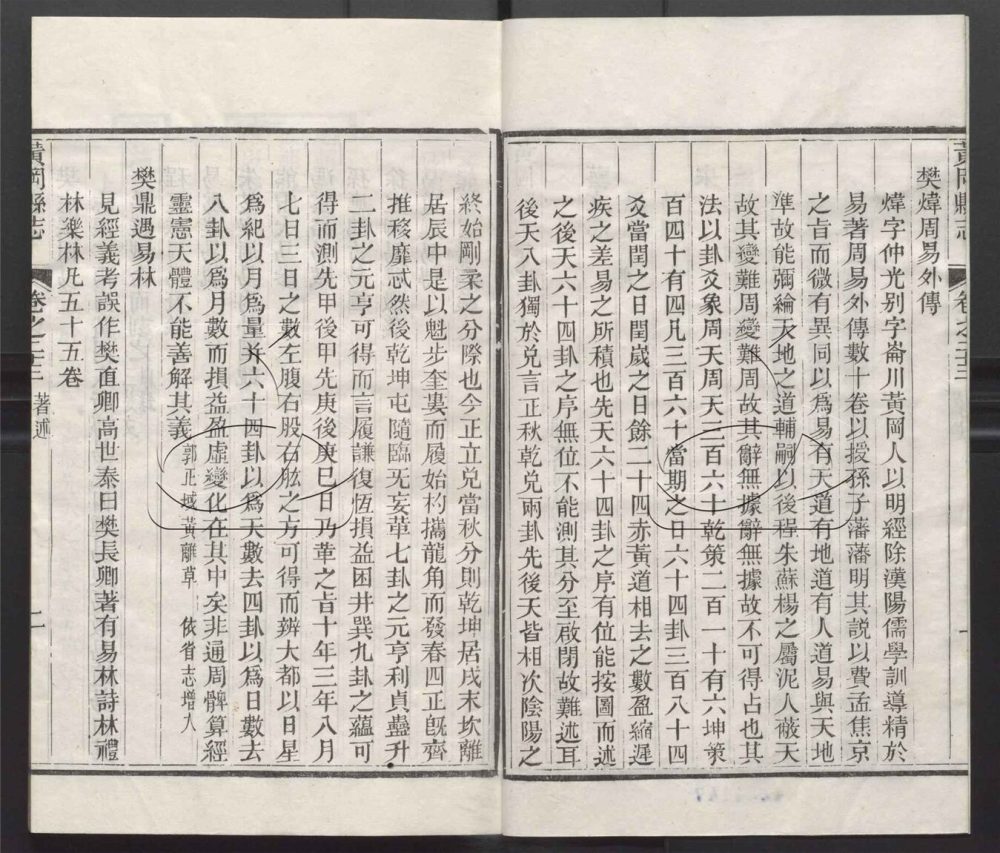 黃岡縣志
卷之二十三
樊煒周易外傳
煒字仲光别字崙川黃岡人以明經除漢陽儒學訓導精於
易著周易外傳數十卷以授孫子藩藩明其說以費孟焦京
之旨而微有異同以為易有天道有地道有人道易與天地
準故能彌綸天地之道輔嗣以後程朱蘇楊之屬泥人蔽天
故其變難周變難周故其辭無據辭無據故不可得占也其
法以卦爻象周天周天三百六十乾策二百一十有六坤策
百四十有四凡三百六十當期之日六十四卦三百八十四
爻當閏之日閏歲之日餘二十四赤黃道相去之數盈縮遲
疾之差易之所積也先天六十四卦之序有位能按圖而述
之後天六十四卦之序無位不能測其分至啟閉故難述耳
後天八卦獨於兌言正秋乾兌兩卦先後天皆相次陰陽之
終始剛柔之分際也今正立兌當秋分則乾坤居戌末坎離
居辰中是以魁步奎婁而履始杓攜龍角而發春四正既齊
推移靡忒然後乾坤屯隨臨无妄革七卦之元亨利貞蠱升
二卦之元亨可得而言履謙復恆損益困井巽九卦之蘊可
得而測先甲後甲先庚後庚巳日乃革之旨十年三年八月
七日三日之數左腹右股右肱之方可得而辨大都以日星
為紀以月為量并六十四卦以為天數去四卦以為日數去
八卦以為月數而損益盈虛變化在其中矣非通周髀算經
靈憲天體不能善解其義郭正域黃離草 依省志增入
樊鼎遇易林
見經義考誤作樊直卿高世泰曰樊長卿著有易林詩林禮
林樂林凡五十五卷
黃岡縣志
卷之二十三 著述